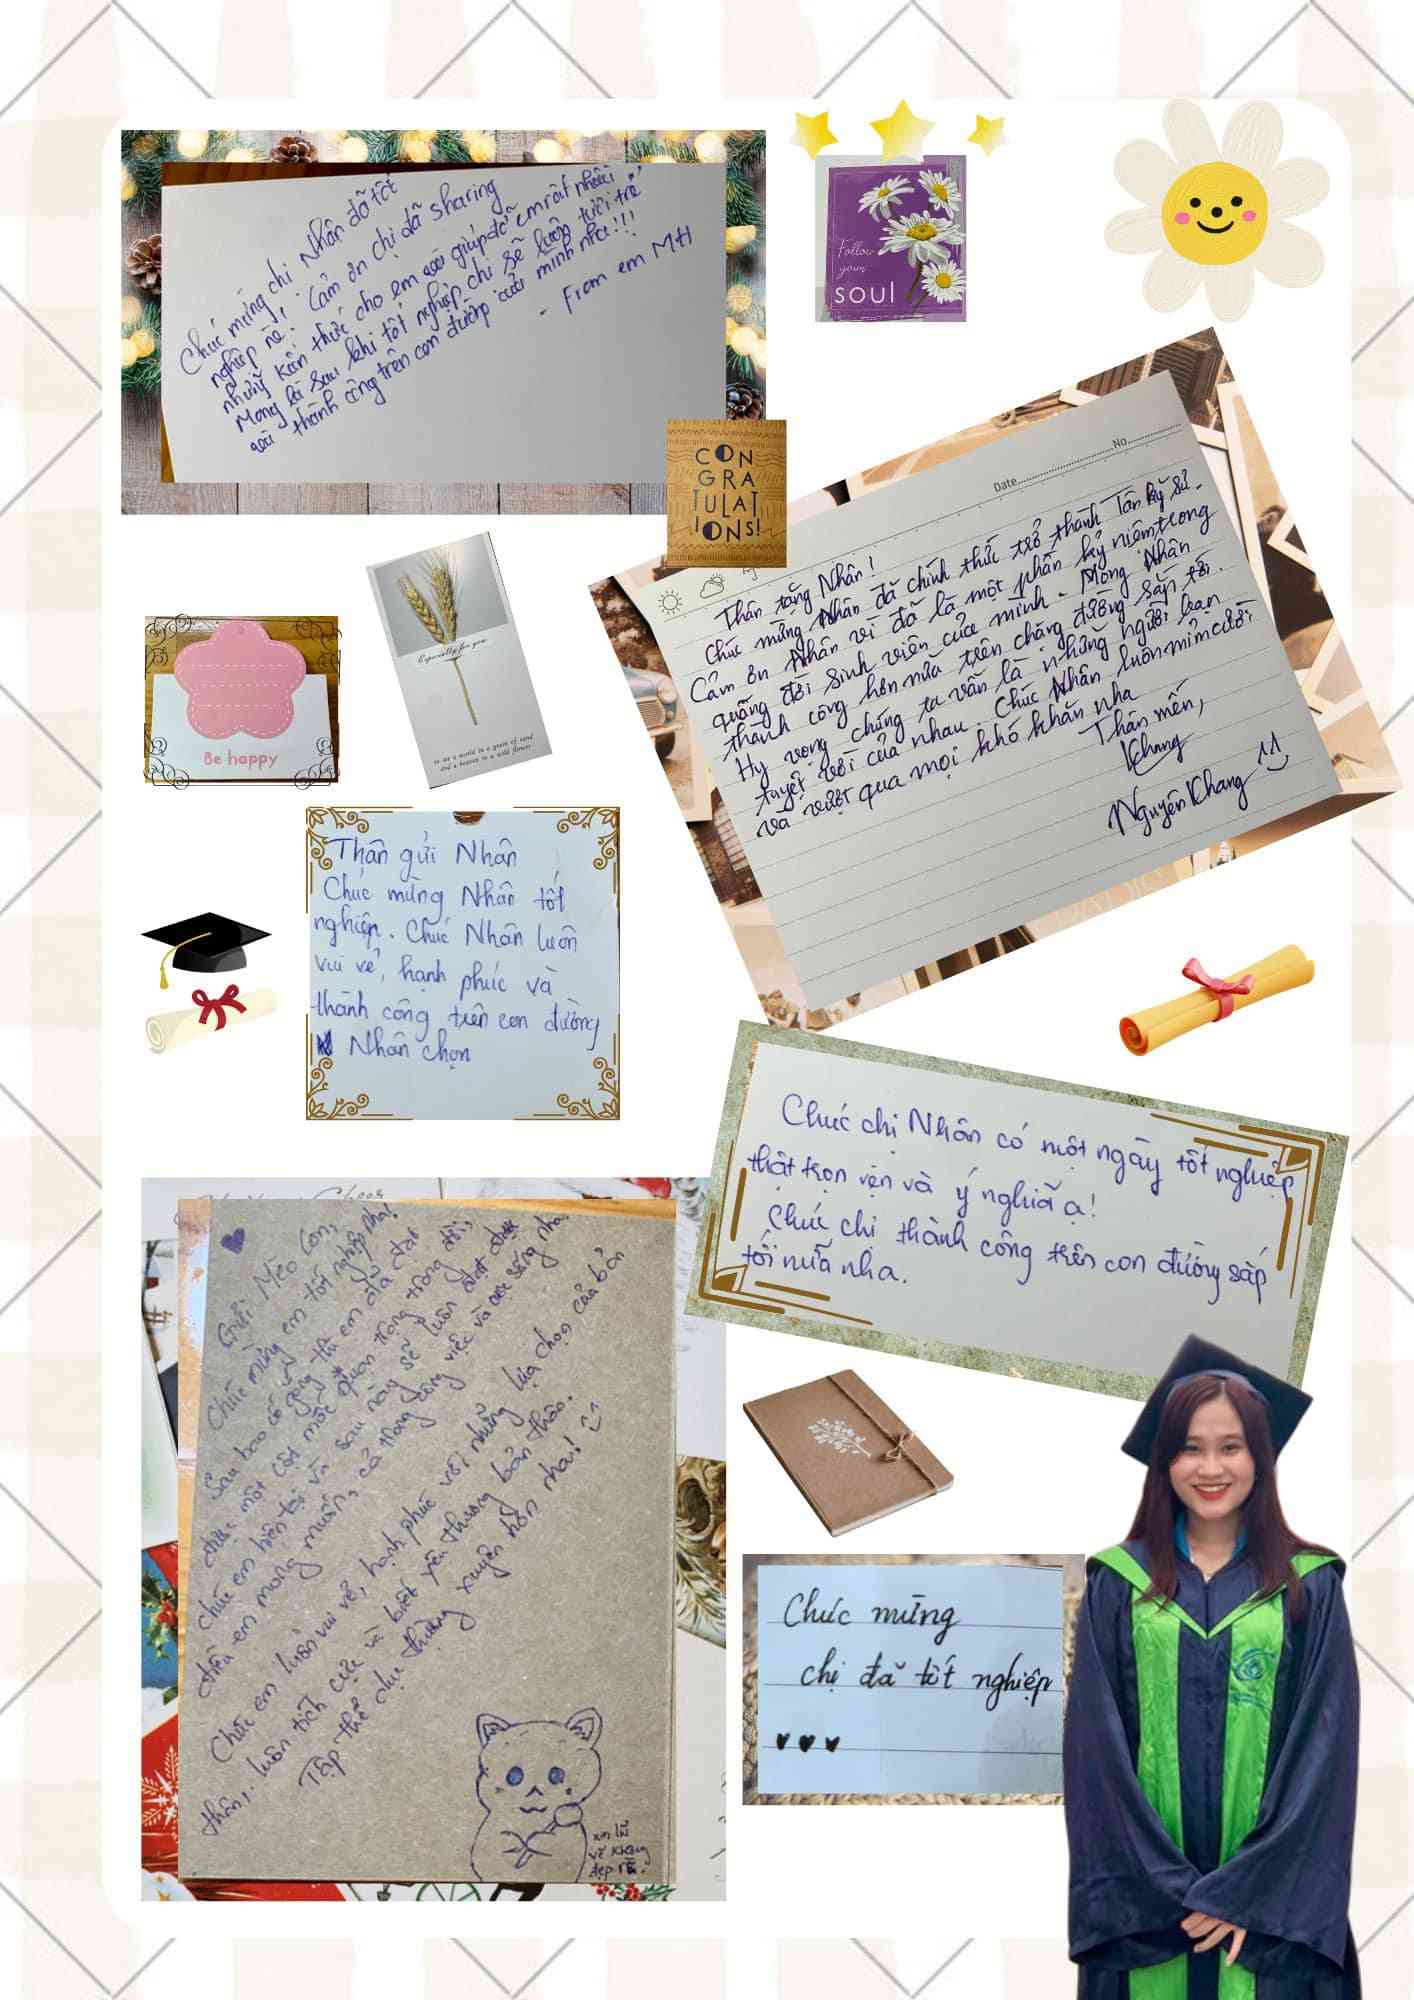 Chúc mừng chị Nhân đã tốt
nghiệp nè! Cảm ơn chị đã sharing
những kiến thức cho em và giúp đỡ em rất nhiều
Mong là sau khi tốt nghiệp chị sẽ luôn tươi trẻ
và thành công trên con đường của mình nha!!!
- From em MH
Follow
your
soul
CON
GRA
TULAT
IONS!
Date No
Thân tặng Nhân!
Chúc mừng Nhân đã chính thức trở thành Tân kỹ sư.
Cảm ơn Nhân vì đã là một phần kỷ niệm trong
quãng đời sinh viên của mình. Mong Nhân
thành công hơn nữa trên chặng đường sắp tới.
Hy vọng chúng ta vẫn là những người bạn
tuyệt vời của nhau. Chúc Nhân luôn mỉm cười
và vượt qua mọi khó khăn nha
Thân mến,
Khang
Nguyên Khang
Especially for you
to see a world in a grain of sand
and a heaven in a wild flower
Be happy
Thân gửi Nhân
Chúc mừng Nhân tốt
nghiệp. Chúc Nhân luôn
vui vẻ, hạnh phúc và
thành công trên con đường
Nhân chọn
Chúc chị Nhân có một ngày tốt nghiệp
thật trọn vẹn và ý nghĩa ạ!
Chúc chị thành công trên con đường sắp
tới nữa nha.
Gửi Mèo Con,
Chúc mừng em tốt nghiệp nha!
Sau bao cố gắng thì em đã đạt
được một cột mốc quan trọng trong đời,
chúc em hiện tại và sau này sẽ luôn đạt được
điều em mong muốn, cả trong công việc và cuộc sống nha.
Chúc em luôn vui vẻ, hạnh phúc với những lựa chọn của bản
thân, luôn tích cực và biết yêu thương bản thân.
Tập thể dục thường xuyên hơn nha!
xin lỗi
vẽ không
đẹp
Chúc mừng
chị đã tốt nghiệp